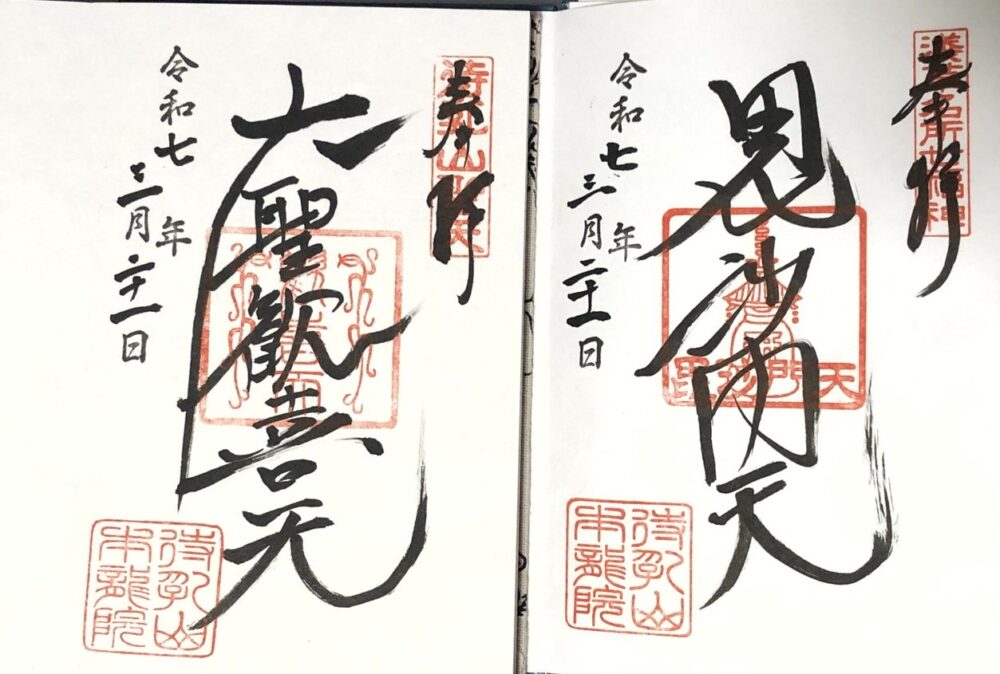 浅草名所七福神
奉拝
毘沙門天
毘沙門天
令和七年
三月二十一日
待乳山
本龍院
待乳山聖天
奉拝
大聖歓喜天
令和七年
三月二十一日
待乳山
本龍院